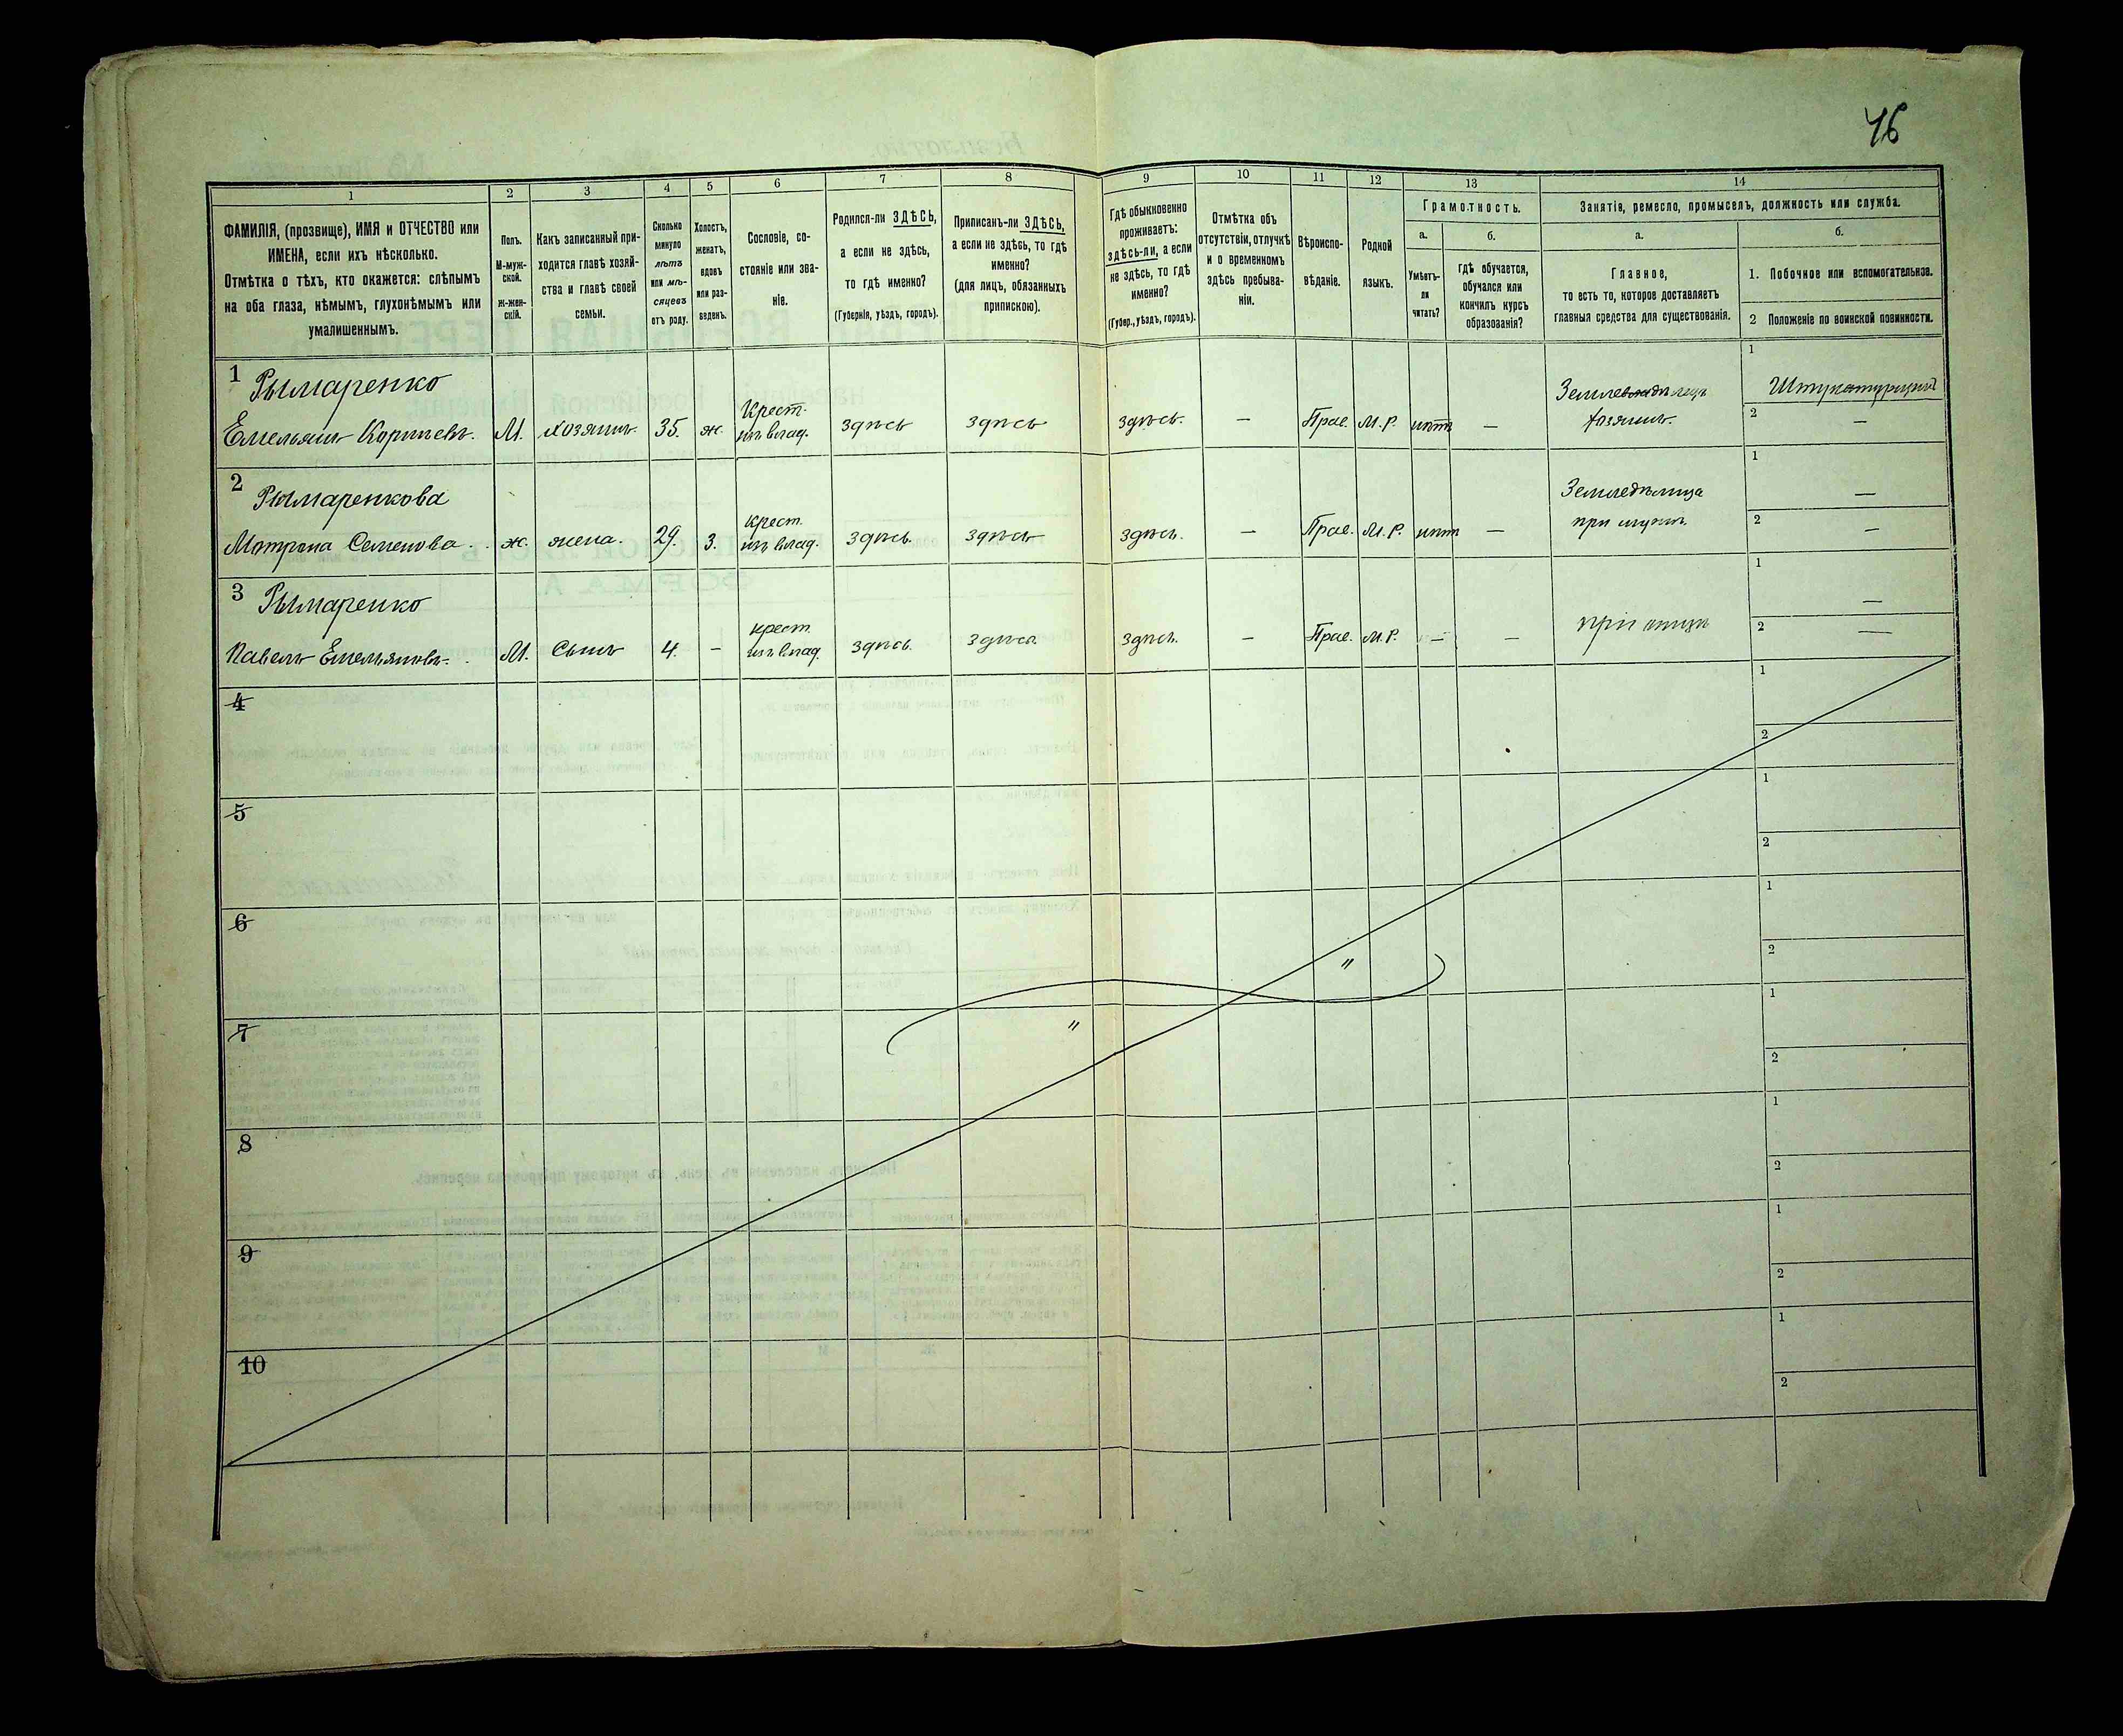 46
1 2 3 4 5 6 7 8 9 10 11 12 13 14
ФАМИЛІЯ, (прозвище), ИМЯ и ОТЧЕСТВО или
ИМЕНА, если ихъ нѣсколько.
Отмѣтка о тѣхъ, кто окажется: слѣпымъ
на оба глаза, нѣмымъ, глухонѣмымъ или
умалишеннымъ.
Полъ.
М-муж-
ской.
Ж-жен-
скій.
Какъ записанный при-
ходится главѣ хозяй-
ства и главѣ своей
семьи.
Сколько
минуло
лѣтъ
или мѣ-
сяцевъ
отъ роду.
Холостъ,
женатъ,
вдовъ
или раз-
веденъ.
Сословіе, со-
стояніе или зва-
ніе.
Родился-ли ЗДѢСЬ,
а если не здѣсь,
то гдѣ именно?
(Губернія, уѣздъ, городъ).
Приписанъ-ли ЗДѢСЬ,
а если не здѣсь, то гдѣ
именно?
(для лицъ, обязанныхъ
припискою).
Гдѣ обыкновенно
проживаетъ:
здѣсь-ли, а если
не здѣсь, то гдѣ
именно?
(Губер., уѣздъ, городъ).
Отмѣтка объ
отсутствіи, отлучкѣ
и о временномъ
здѣсь пребыва-
ніи.
Вѣроиспо-
вѣданіе.
Родной
языкъ.
Грамотность.
а.
Умѣетъ-
ли
читать?
б.
Гдѣ обучается,
обучался или
кончилъ курсъ
образованія?
Занятіе, ремесло, промыселъ, должность или служба.
а.
Главное,
то есть то, которое доставляетъ
главныя средства для существованія.
б.
1. Побочное или вспомогательное.
2 Положеніе по воинской повинности.
1 Рымаренко
Емельянъ М. хозяинъ. 35. ж. Крест. изъ влад. здѣсь здѣсь здѣсь. — Прав. М.Р. нѣтъ —
хозяинъ.
1
2 —
2 Рымаренкова
Мотрона Семенова. ж. жена. 29. з. крест. изъ влад. здѣсь. здѣсь здѣсь. — Прав. М.Р. нѣтъ —
Земледѣлица
при мужѣ.
1 —
2 —
3 Рымаренко
Павелъ Емельяновъ. М. Сынъ 4. — крест. изъ влад. здѣсь. здѣсь. здѣсь. — Прав. М.Р. — —
при отцѣ
1 —
2 —
4
1
2
5
1
2
6
1
2
7
1
2
8
1
2
9
1
2
10
1
2